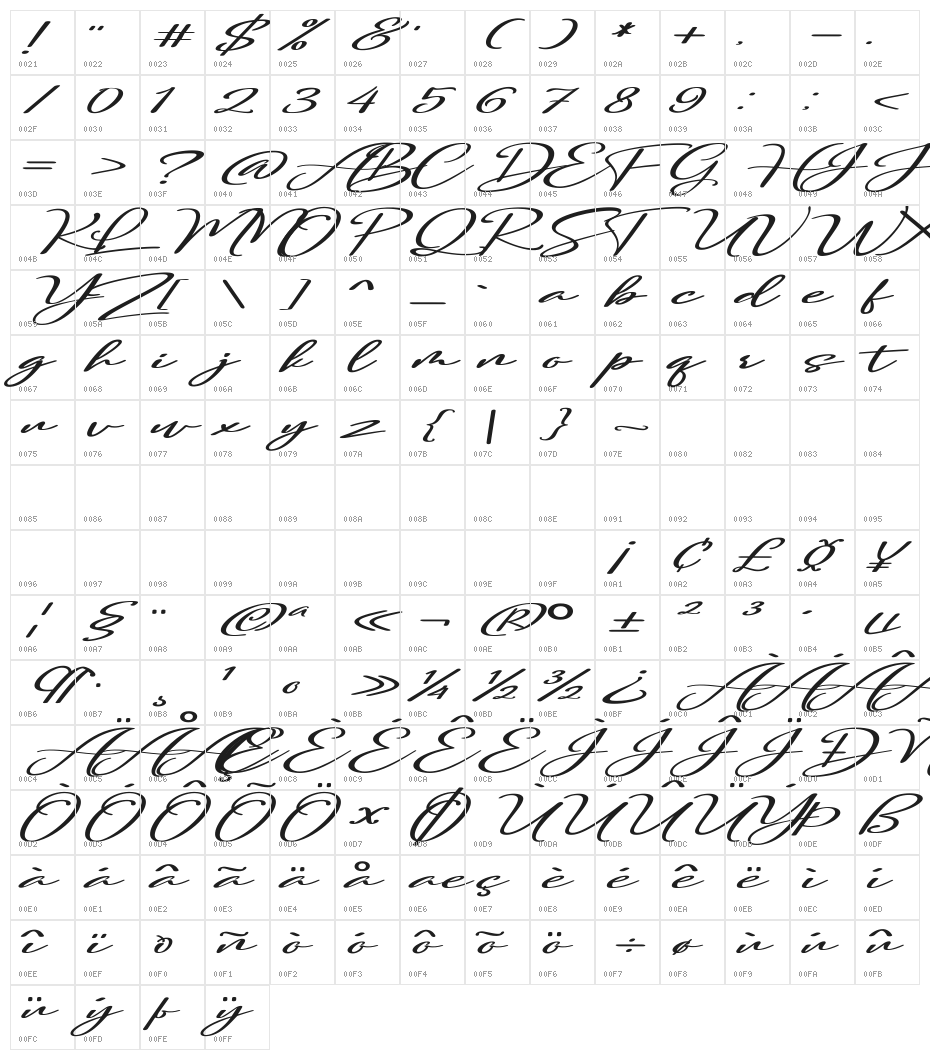 ! " # $ % & ' ( ) * + , - .
0021 0022 0023 0024 0025 0026 0027 0028 0029 002A 002B 002C 002D 002E
/ 0 1 2 3 4 5 6 7 8 9 : ; <
002F 0030 0031 0032 0033 0034 0035 0036 0037 0038 0039 003A 003B 003C
= > ? @ A B C D E F G H I J
003D 003E 003F 0040 0041 0042 0043 0044 0045 0046 0047 0048 0049 004A
K L M N O P Q R S T U V W X
004B 004C 004D 004E 004F 0050 0051 0052 0053 0054 0055 0056 0057 0058
Y Z [ \ ] ^ _ ` a b c d e f
0059 005A 005B 005C 005D 005E 005F 0060 0061 0062 0063 0064 0065 0066
g h i j k l m n o p q r s t
0067 0068 0069 006A 006B 006C 006D 006E 006F 0070 0071 0072 0073 0074
u v w x y z { | } ~
0075 0076 0077 0078 0079 007A 007B 007C 007D 007E 0080 0082 0083 0084
0085 0086 0087 0088 0089 008A 008B 008C 008E 0091 0092 0093 0094 0095
¡ ¢ £ ¤ ¥
0096 0097 0098 0099 009A 009B 009C 009E 009F 00A1 00A2 00A3 00A4 00A5
¦ § ¨ © ª « ¬ ® ° ± ² ³ ´ µ
00A6 00A7 00A8 00A9 00AA 00AB 00AC 00AE 00B0 00B1 00B2 00B3 00B4 00B5
¶ · ¸ ¹ º » ¼ ½ ¾ ¿ À Á Â
00B6 00B7 00B8 00B9 00BA 00BB 00BC 00BD 00BE 00BF 00C0 00C1 00C2 00C3
Ä Å Ç È É Ê Ë Ì Í Î Ï Ð Ñ
00C4 00C5 00C6 00C7 00C8 00C9 00CA 00CB 00CC 00CD 00CE 00CF 00D0 00D1
Ò Ó Ô Õ Ö × Ø Ù Ú Û Ü Ý Þ ß
00D2 00D3 00D4 00D5 00D6 00D7 00D8 00D9 00DA 00DB 00DC 00DD 00DE 00DF
à á â ã ä å æ ç è é ê ë ì í
00E0 00E1 00E2 00E3 00E4 00E5 00E6 00E7 00E8 00E9 00EA 00EB 00EC 00ED
î ï ð ñ ò ó ô õ ö ÷ ø ù ú û
00EE 00EF 00F0 00F1 00F2 00F3 00F4 00F5 00F6 00F7 00F8 00F9 00FA 00FB
ü ý þ ÿ
00FC 00FD 00FE 00FF